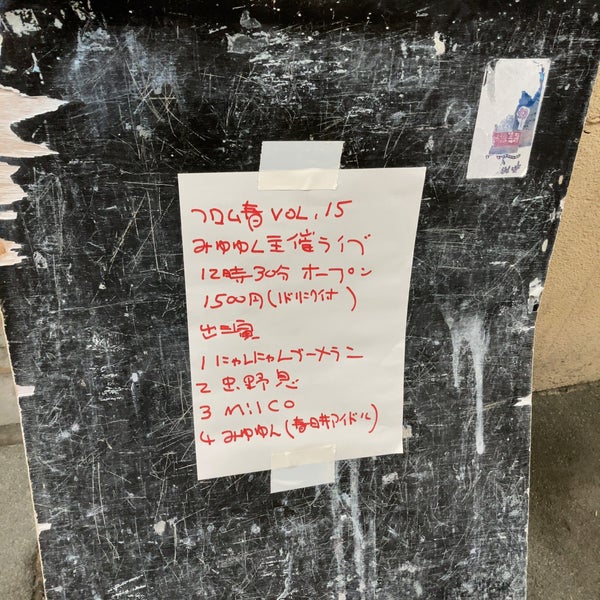 フロム春 VOL.15
みゆゆん主催ライブ
12時30分 オープン
1500円(1ドリンク付)
出演
1 にゃんにゃんブーメラン
2 忠野恩
3 MilCO
4 みゆゆん(春日井アイドル)